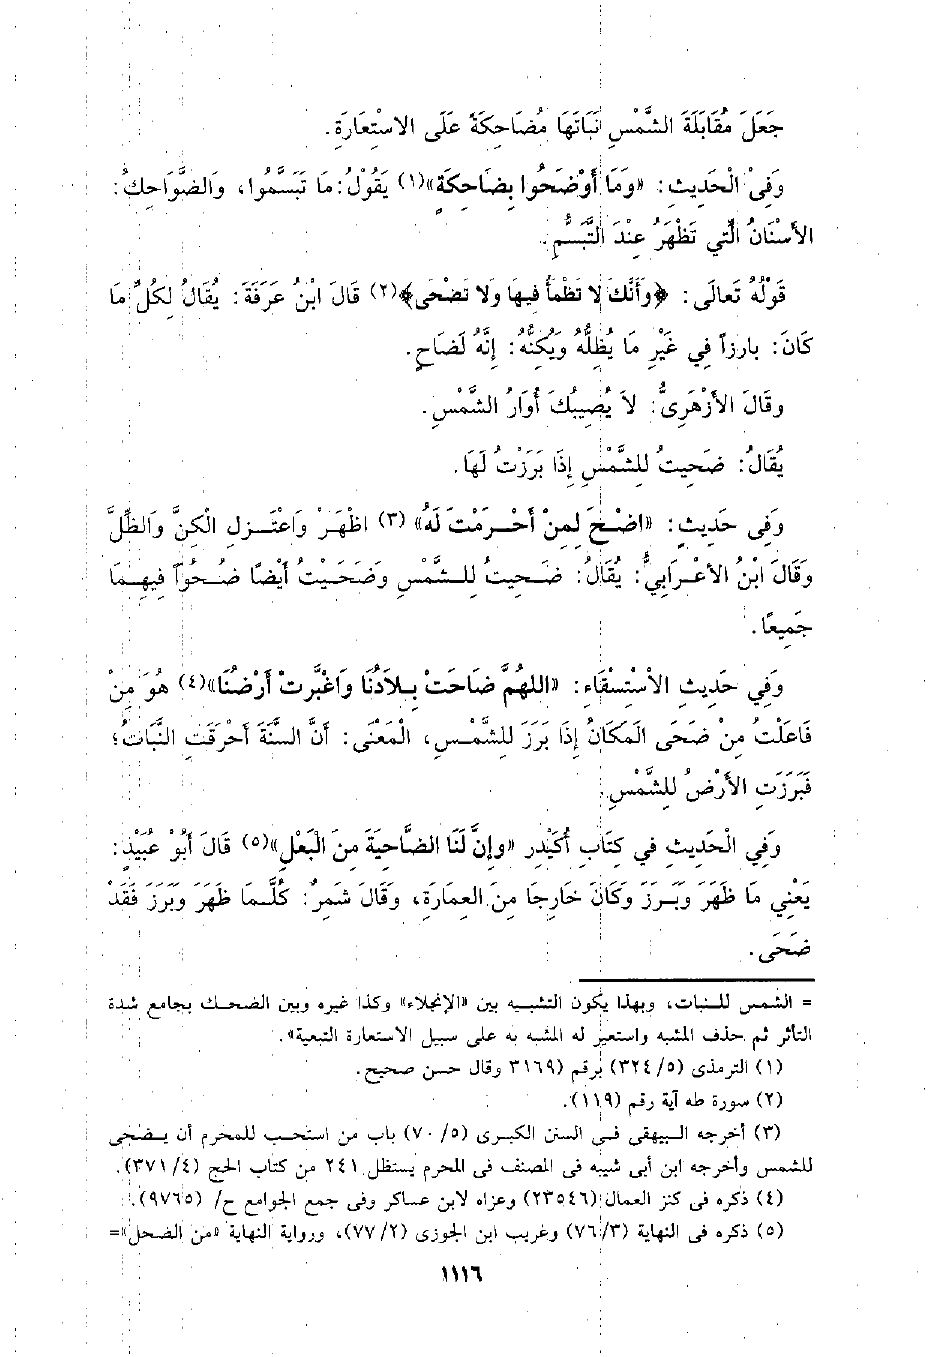 جَعَلَ مُقَابَلَةَ الشَّمْسِ نَبَاتَهَا مُضَاحِكَةً عَلَى الاسْتِعَارَةِ.
وَفِىْ الْحَدِيثِ: «وَمَا أَوْضَحُوا بِضَاحِكَةٍ»(١) يَقُوْلُ: مَا تَبَسَّمُوا، وَالضَّوَاحِكُ:
الأَسْنَانُ الَّتِي تَظْهَرُ عِنْدَ التَّبَسُّمِ.
قَوْلُهُ تَعَالَى: ﴿وَأَنَّكَ لا تَظْمَأُ فِيهَا وَلا تَضْحَى﴾(٢) قَالَ ابْنُ عَرَفَةَ: يُقَالُ لِكُلِّ مَا
كَانَ: بارزاً فِي غَيْرِ مَا يُظِلُّهُ وَيُكِنُّهُ: إِنَّهُ لَضَاحٍ.
وَقَالَ الأَزْهَرِىُّ: لاَ يُصِيبُكَ أُوَارُ الشَّمْسِ.
يُقَالُ: ضَحِيتُ لِلشَّمْسِ إِذَا بَرَزْتُ لَهَا.
وَفِى حَدِيثِ: «اضْحَ لِمَنْ أَحْرَمْتَ لَهُ» (٣) اظْهَرْ وَاعْتَزِلِ الْكِنَّ وَالظِّلَّ
وَقَالَ ابْنُ الأَعْرَابِيُّ: يُقَالُ: ضَحِيتُ لِلشَّمْسِ وَضَحَيْتُ أَيْضًا ضُحُوّاً فِيهِمَا
جَمِيعًا.
وَفِي حَدِيثِ الاسْتِسْقَاءِ: «اللهُمَّ ضَاحَتْ بِلاَدُنَا وَاغْبَرتْ أَرْضُنَا»(٤) هُوَ مِنْ
فَاعَلْتُ مِنْ ضَحَى الْمَكَانُ إِذَا بَرَزَ لِلشَّمْسِ، الْمَعْنَى: أَنَّ السنَّةَ أَحْرَقَتِ النَّبَاتُ؛
فَبَرَزَتِ الأَرْضُ لِلشَّمْسِ.
وَفِي الْحَدِيثِ فِي كِتَابِ أُكَيْدِر «وإِنَّ لَنَا الضَّاحِيَةَ مِنَ الْبَعْلِ»(٥) قَالَ أَبُوْ عُبَيْدٍ:
يَعْنِي مَا ظَهَرَ وَبَرَزَ وَكَانَ خَارِجًا مِنَ العِمَارَةِ، وَقَالَ شَمِرٌ: كُلَّمَا ظَهَرَ وَبَرَزَ فَقَدْ
ضَحَى.
= الشمس للنبات، وبهذا يكون التشبيه بين «الإنجلاء» وكذا غيره وبين الضحك بجامع شدة
التأثر ثم حذف المشبه واستعير له المشبه به على سبيل الاستعارة التبعية».
(١) الترمذى (٥/ ٣٢٤) برقم (٣١٦٩ وقال حسن صحيح.
(٢) سورة طه آية رقم (١١٩).
(٣) أخرجه البيهقى فى السنن الكبرى (٥/ ٧٠) باب من استحب للمحرم أن يضحى
للشمس وأخرجه ابن أبى شيبه فى المصنف فى المحرم يستظل ٢٤١ من كتاب الحج (٤/ ٣٧١).
(٤) ذكره فى كنز العمال (٢٣٥٤٦) وعزاه لابن عساكر وفى جمع الجوامع ح/ (٩٧٦٥).
(٥) ذكره فى النهاية (٣/ ٧٦) وغريب ابن الجوزى (٢/ ٧٧)، ورواية النهاية «من الضحل»=
١١١٦